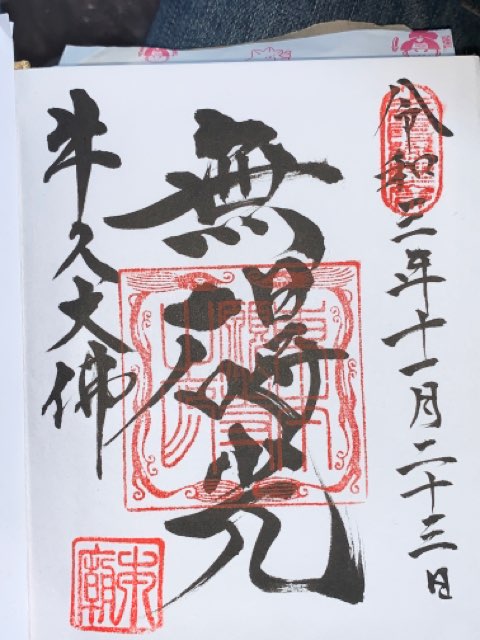 令和三年十一月二十三日
無碍光
牛久大佛